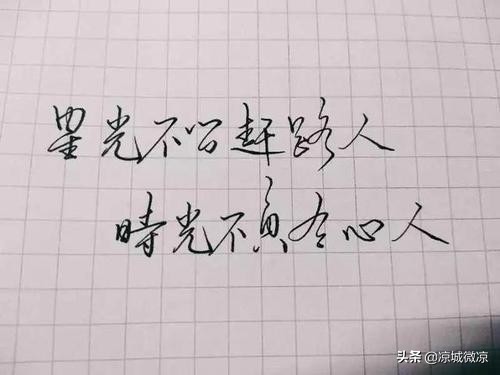 星光不问赶路人
時光不負有心人
头条 @凉城微凉